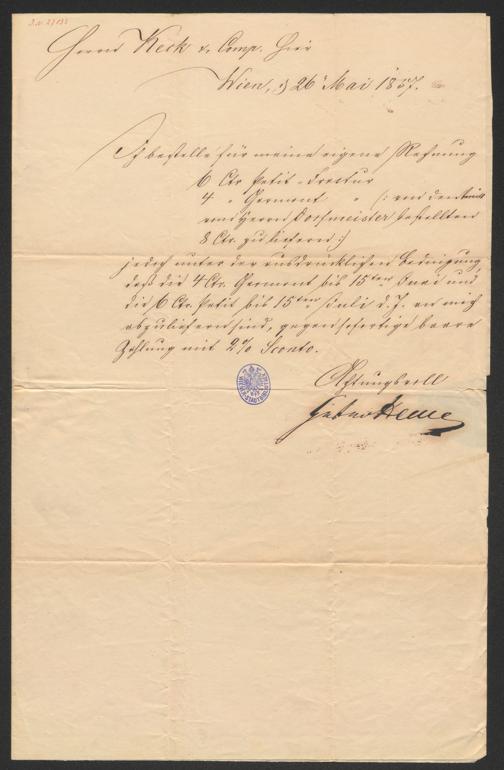 Herrn Keck & Comp. Hier
Wien, d 26t Mai 1857.
Ich bestelle für meine eigene Rechnung
6 Ctr Petit-Fractur
4 " Germont " (: von den
von Herrn bestellten
8 Ctr. zu liefern :)
jedoch unter der ausdrücklichen Bedingung,
daß die 4 Ctr. Germont bis 15ten Juni und
die 6 Ctr. Petit bis 15ten Juli d. J. an mich
abzuliefern sind, gegen sofortige baare
Zahlung mit 2% Sconto.
Achtungsvoll